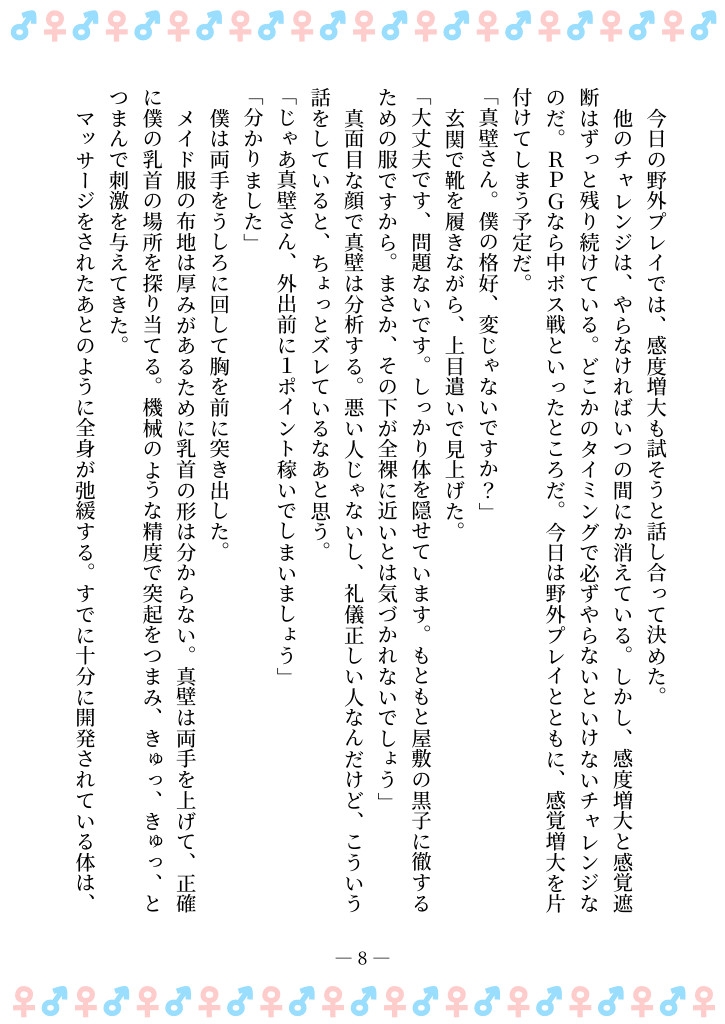 今日の野外プレイでは、感度増大も試そうと話し合って決めた。
他のチャレンジは、やらなければいつの間にか消えている。しかし、感度増大と感覚遮
断はずっと残り続けている。どこかのタイミングで必ずやらないといけないチャレンジな
のだ。ＲＰＧなら中ボス戦といったところだ。今日は野外プレイとともに、感覚増大を片
付けてしまう予定だ。
「真壁さん。僕の格好、変じゃないですか？」
玄関で靴を履きながら、上目遣いで見上げた。
「大丈夫です、問題ないです。しっかり体を隠せています。もともと屋敷の黒子に徹する
ための服ですから。まさか、その下が全裸に近いとは気づかれないでしょう」
真面目な顔で真壁は分析する。悪い人じゃないし、礼儀正しい人なんだけど、こういう
話をしていると、ちょっとズレているなあと思う。
「じゃあ真壁さん、外出前に１ポイント稼いでしまいましょう」
「分かりました」
僕は両手をうしろに回して胸を前に突き出した。
メイド服の布地は厚みがあるために乳首の形は分からない。真壁は両手を上げて、正確
に僕の乳首の場所を探り当てる。機械のような精度で突起をつまみ、きゅっ、きゅっ、と
つまんで刺激を与えてきた。
マッサージをされたあとのように全身が弛緩する。すでに十分に開発されている体は、
― 8 ―